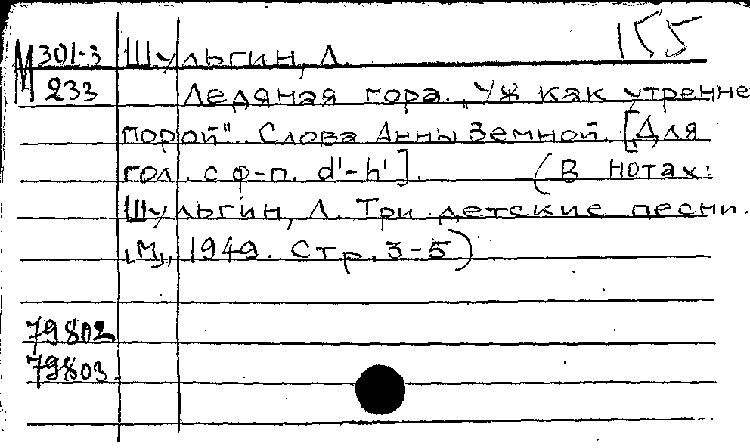 155
М 301-3 Шульгин, Л.
233 Ледяная гора. „Уж как утренне
порой". Слова Анны Земной. [Для
гол. с ф-п. d'-h']. (В нотах:
Шульгин, Л. Три детские песни.
„М„, 1949. Стр. 3-5)
79802
79803